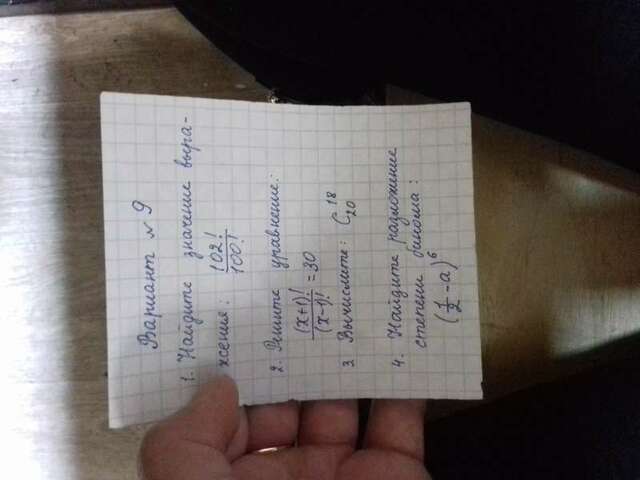 Вариант №9
1. Найдите значение выра-
жения: 102!/100!
2. Решите уравнение:
(x+1)!/(x-1)! = 30
3 Вычислите: C₂₀¹⁸
4. Найдите разложение
степени бинома:
(1/2 - a)⁶